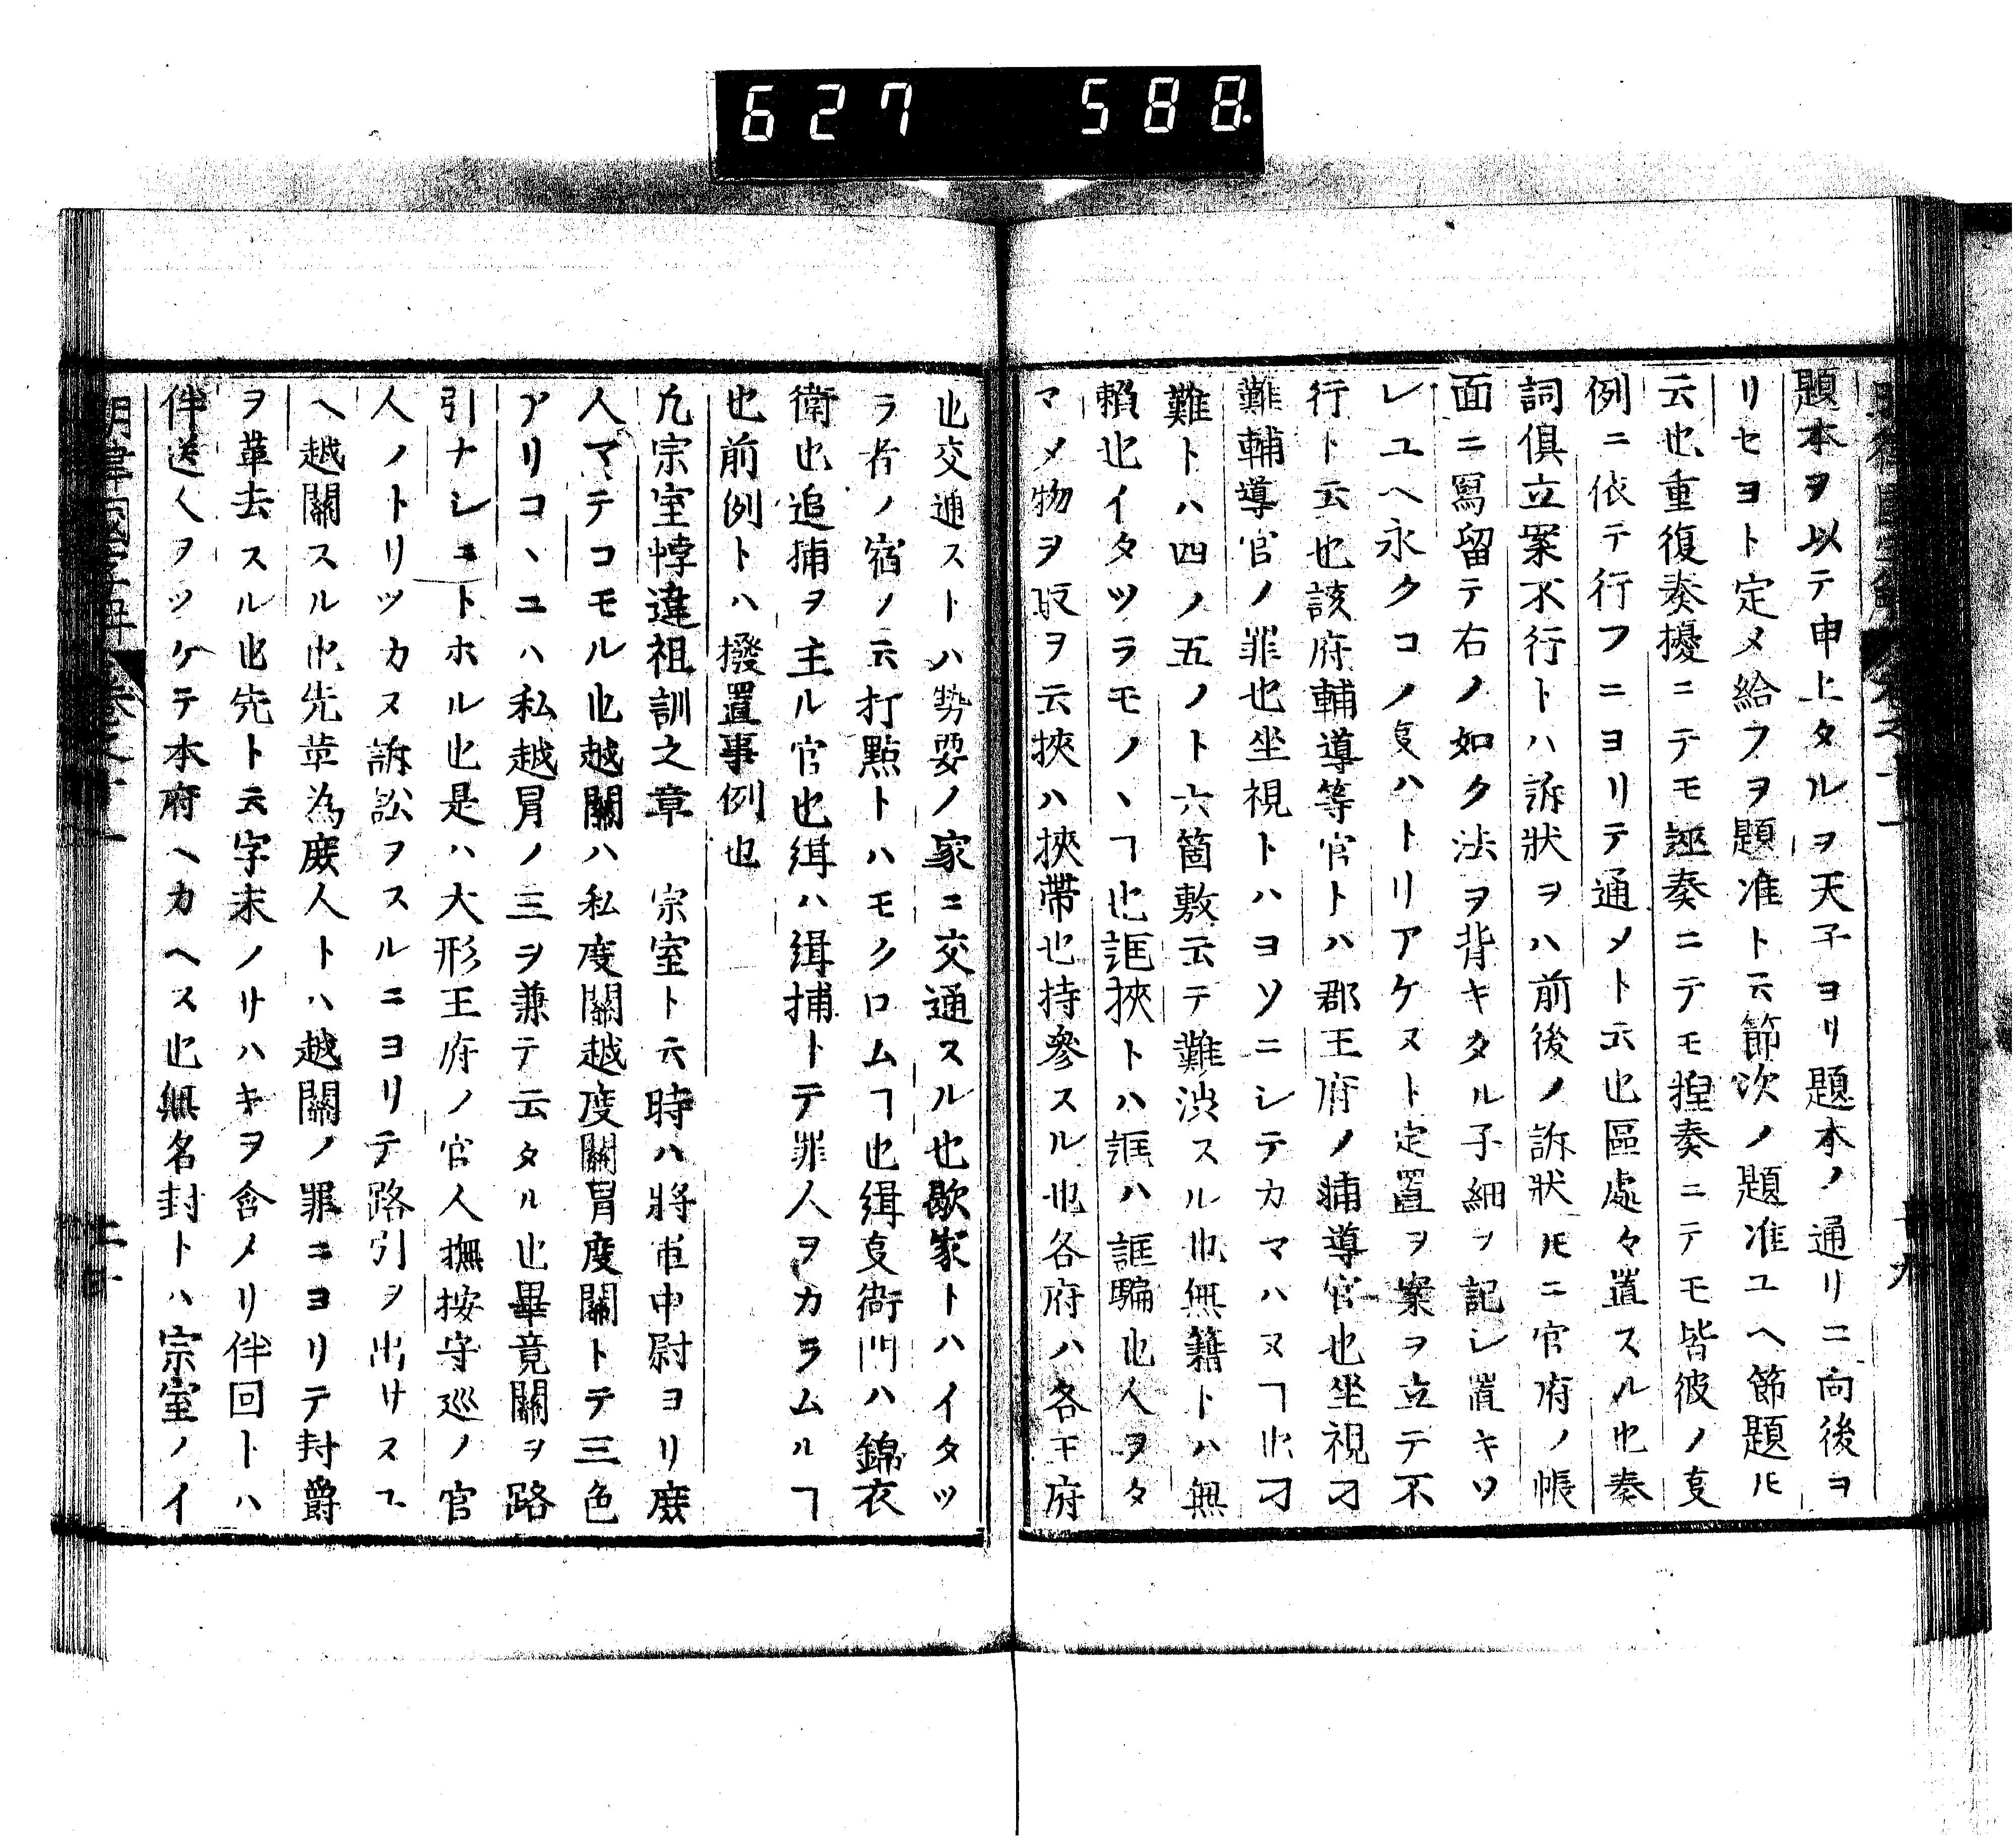 627 588.
題本ヲ以テ申上タルヲ天子ヨリ題本ノ通リニ向後ヨ
リセヨト定メ給フヲ題准ト云節次ノ題准ユヘ節題ㇳモ
云也重復奏擾ニテモ誣奏ニテモ捏奏ニテモ皆彼ノ㕝
例ニ依テ行フニヨリテ通メト云也區處々置スル也奏
詞俱立案不行トハ訴狀ヲハ前後ノ訴狀ㇳモニ官府ノ帳
面ニ寫留テ右ノ如ク法ヲ背キタル子細ヲ記レ置キソ
レユヘ永クコノ㕝ハトリアケヌト定置ヲ案ヲ立テ不
行ト云也該府輔導等官トハ郡王府ノ輔導官也坐視刁
難輔導官ノ罪也坐視トハヨソニシテカマハヌヿ也刁
難トハ四ノ五ノト六箇敷云テ難渋スル也無籍トハ無
賴也イタツラモノヽヿ也誆挾トハ誆ハ誆騙也人ヲタ
マメ物ヲ取ヲ云挾ハ挾帶也持參スル也各府ハ各王府
也交通ストハ勢要ノ家ニ交通スル也歇家トハイタツ
ラ者ノ宿ノ云打點トハモクロムヿ也緝㕝衙門ハ錦衣
衛也追捕ヲ主ル官也緝ハ緝捕トテ罪人ヲカラムルヿ
也前例トハ撥置事例也
凢宗室悖違祖訓之章　宗室ト云時ハ將軍中尉ヨリ庻
人マテコモル也越關ハ私度關越度關冐度關トテ三色
アリコヽユハ私越冐ノ三ヲ兼テ云タル也畢竟關ヲ路
引ナシニトホル也是ハ大形王府ノ官人撫按守巡ノ官
人ノトリツカヌ訴訟ヲスルニヨリテ路引ヲ出サスユ
ヘ越關スル也先革為庻人トハ越關ノ罪ニヨリテ封爵
ヲ革去スル也先ト云字末ノサハキヲ含メリ伴回トハ
伴送人ヲツケテ本府ヘカヘス也無名封トハ宗室ノイ
明律國字解